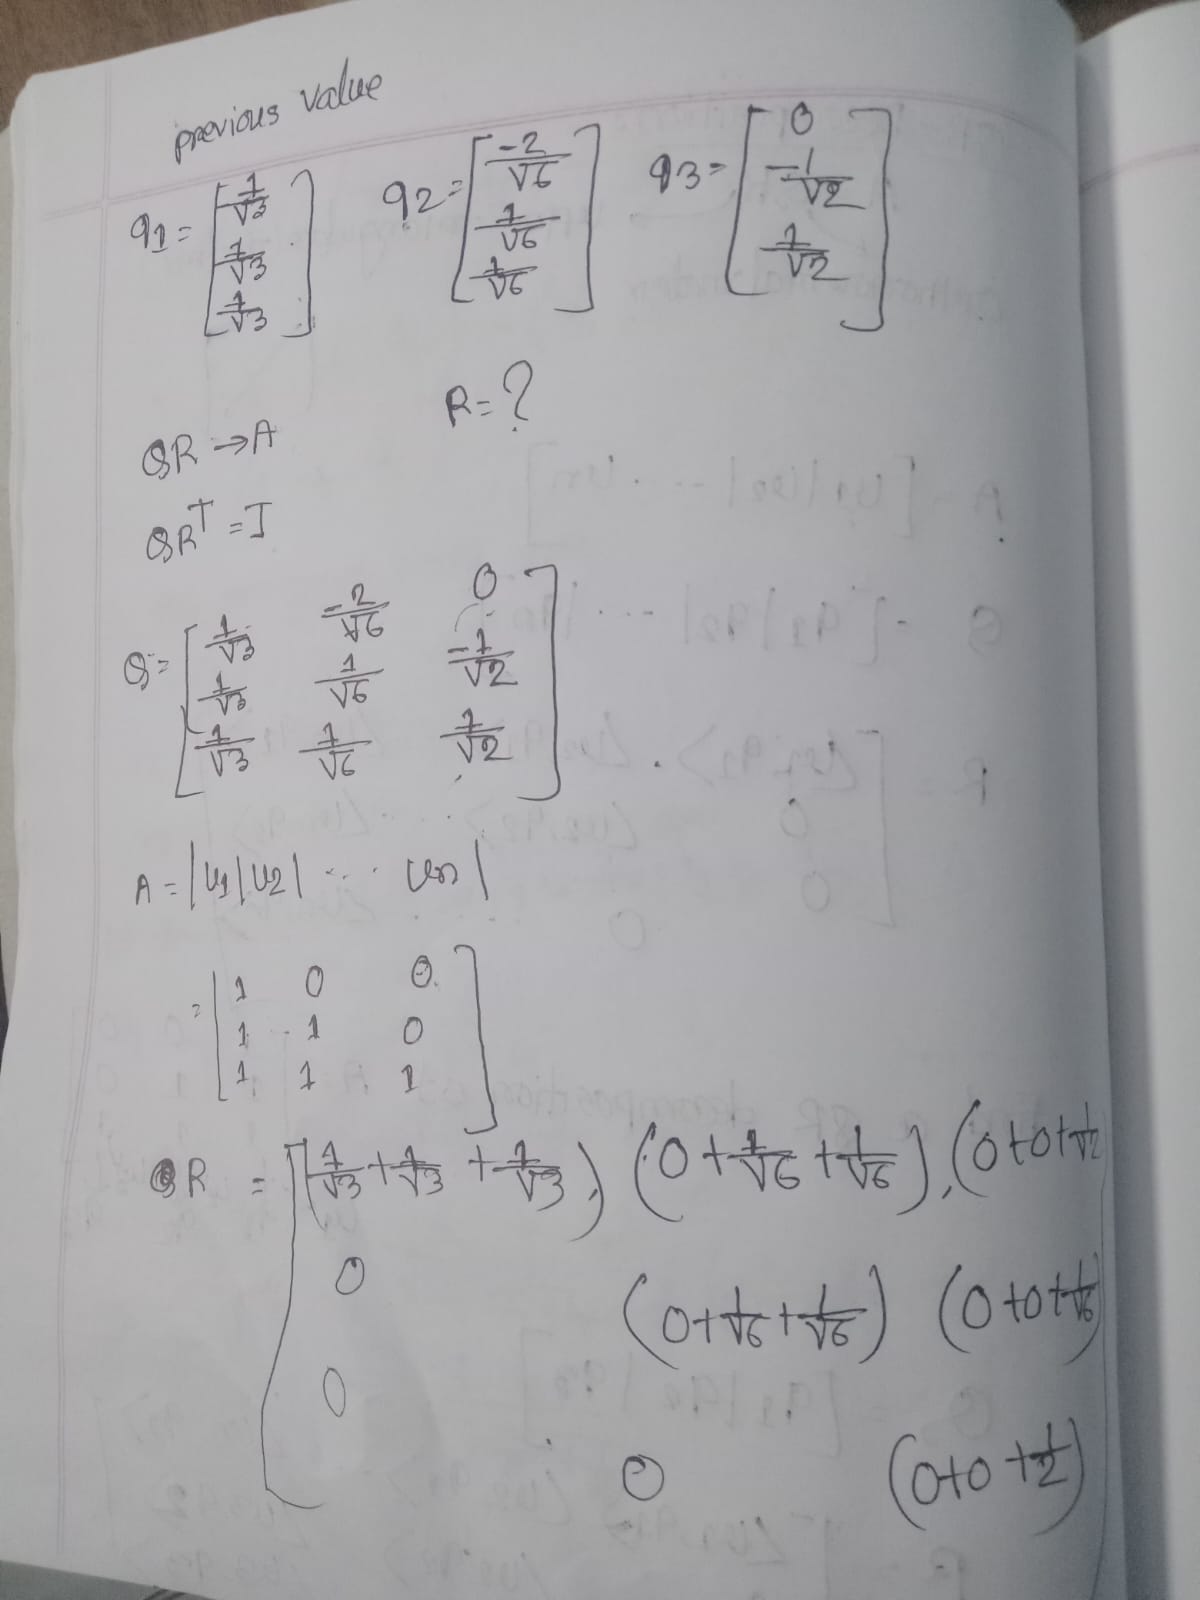 previous value
q1 = [1/√3 1/√3 1/√3] q2 = [-2/√6 1/√6 1/√6] q3 = [0 -1/√2 1/√2]
R = ?
QR → A
QR^T = I
Q = [1/√3 -2/√6 0
1/√3 1/√6 -1/√2
1/√3 1/√6 1/√2]
A = |u1|u2| ... un|
= [1 0 0
1 1 0
1 1 1]
R = [(1/√3 + 1/√3 + 1/√3), (0 + 1/√6 + 1/√6), (0+0+1/√2
0 (0 + 1/√6 + 1/√6) (0+0+1/√6)
0 0 (0+0+1/2)